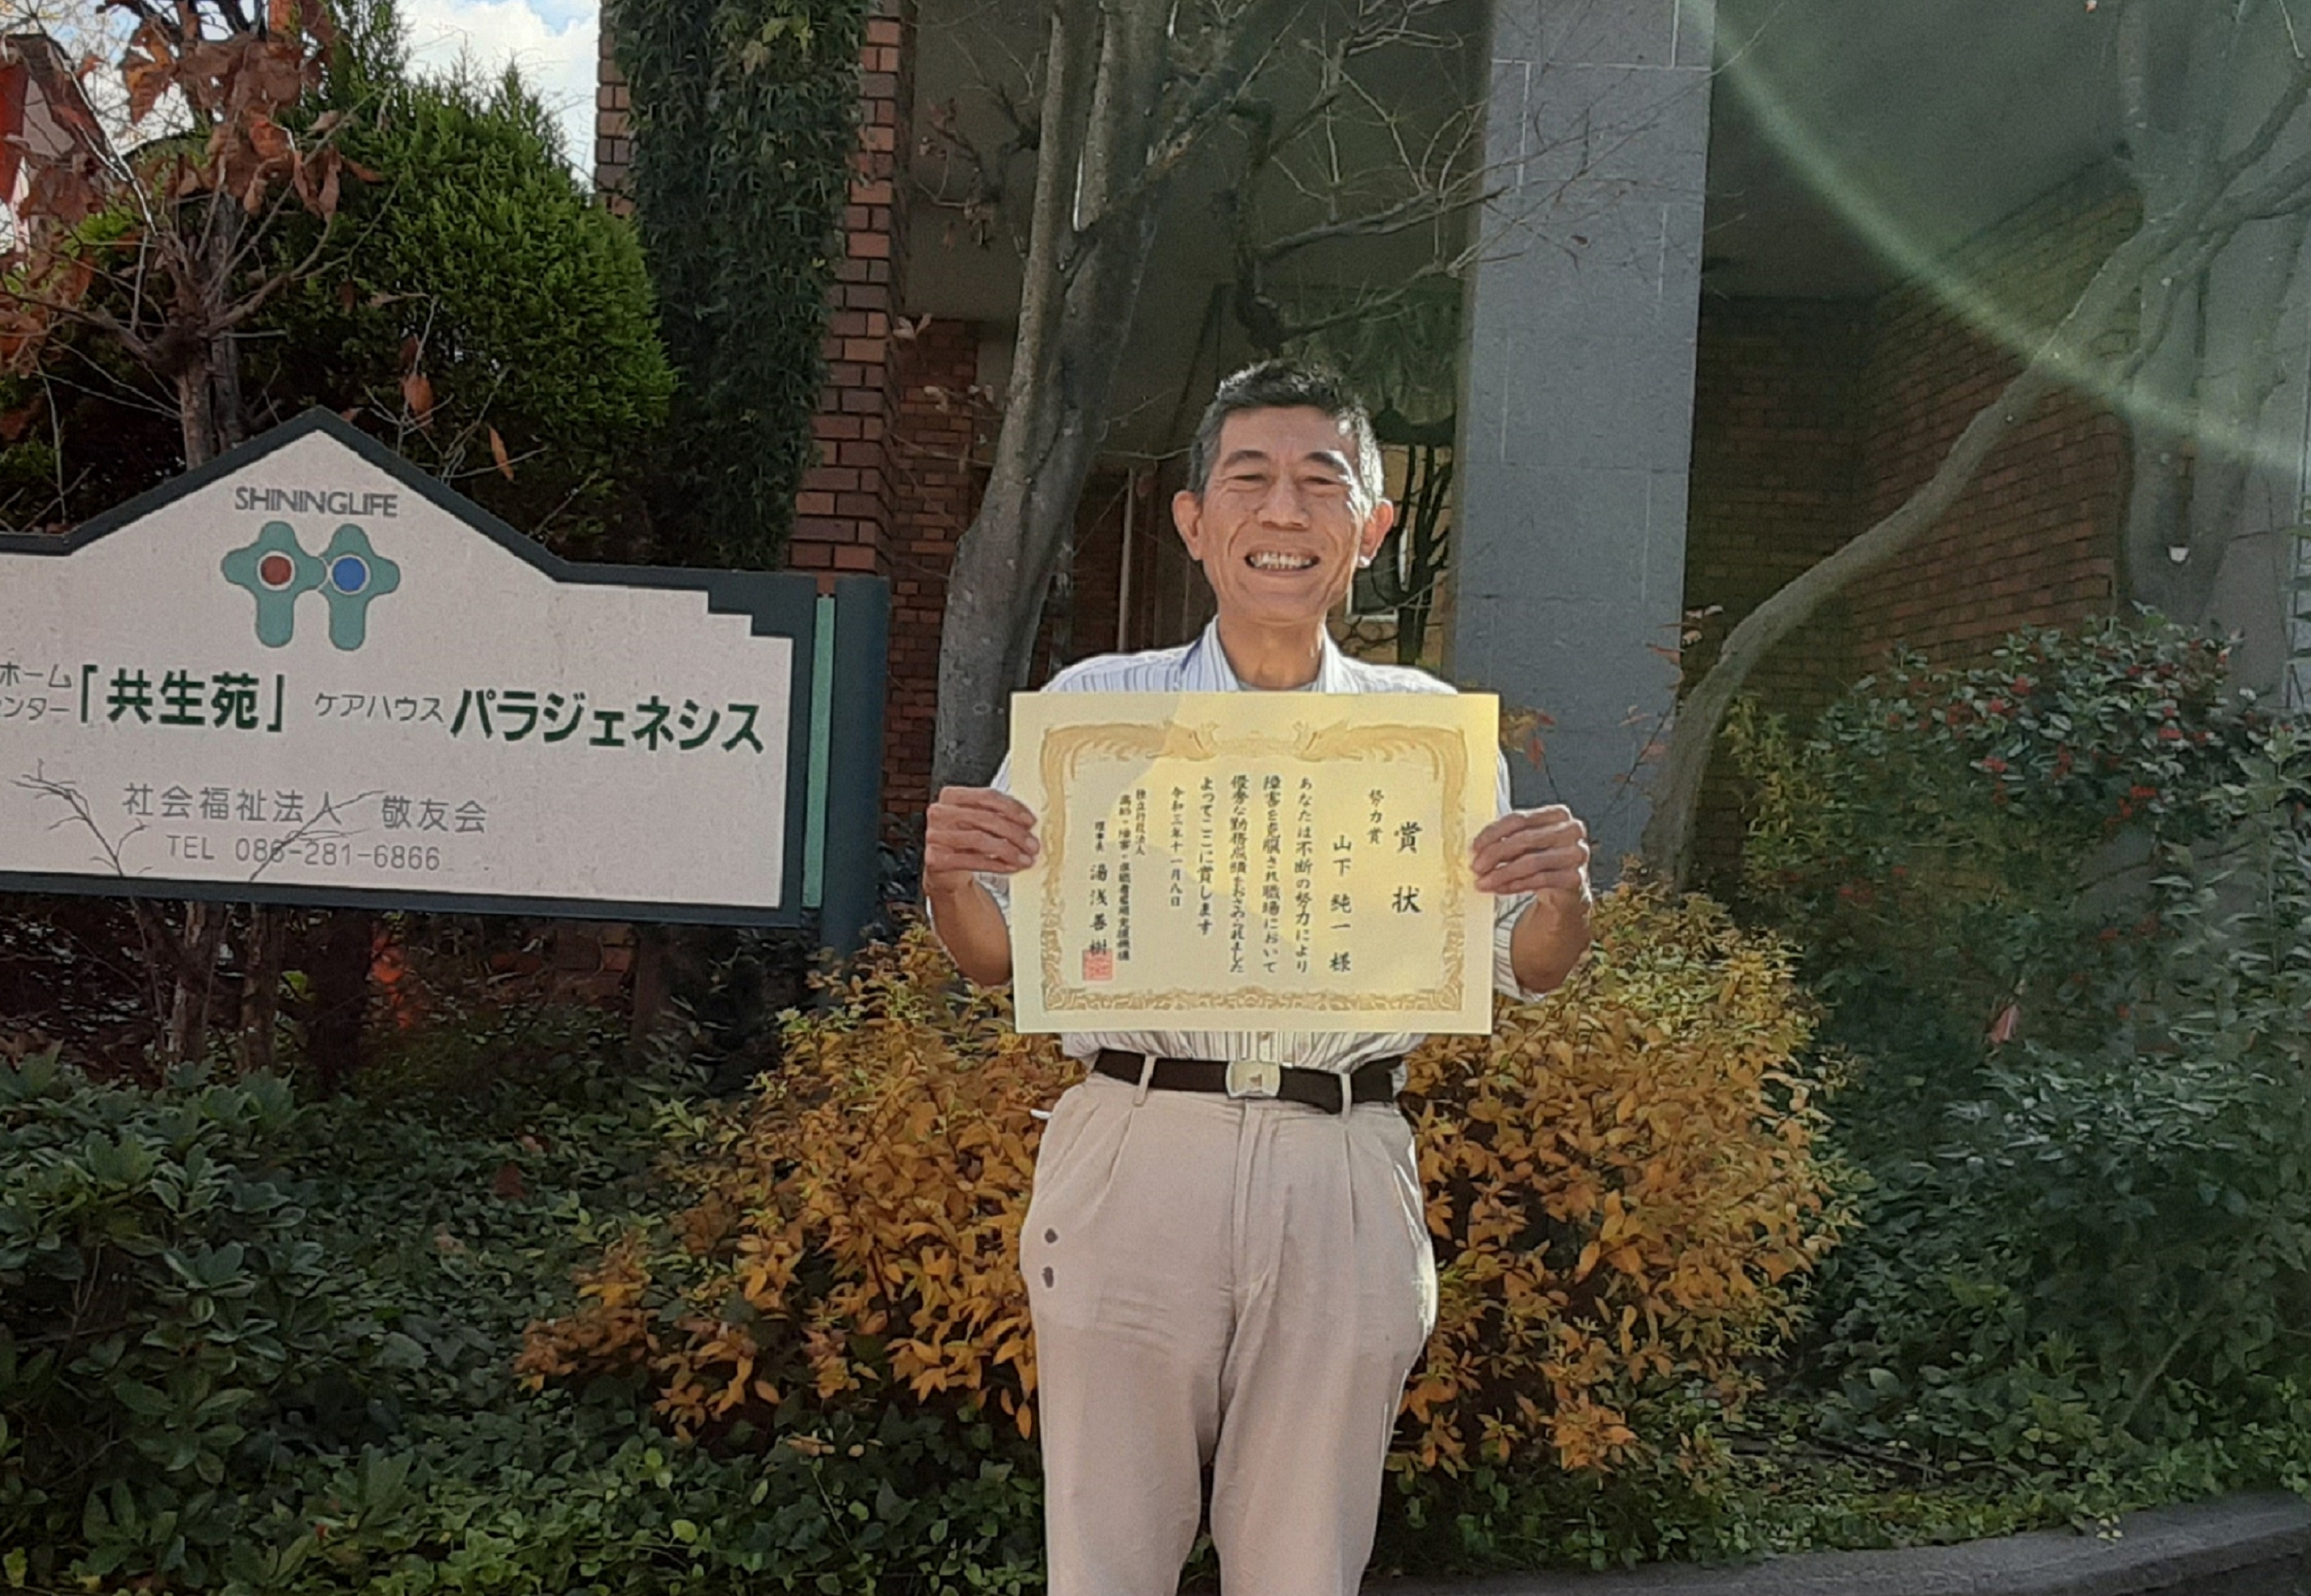 SHININGLIFE
ホーム
ンター「共生苑」 ケアハウス パラジェネシス
社会福祉法人 敬友会
TEL 086-281-6866
賞状
努力賞
山下 純一 様
あなたは不断の努力により
障害を克服され職場において
優秀な勤務成績をおさめられました
よってここに賞します
令和三年十一月八日
独立行政法人
高齢・障害・求職者雇用支援機構
理事長 湯浅善樹